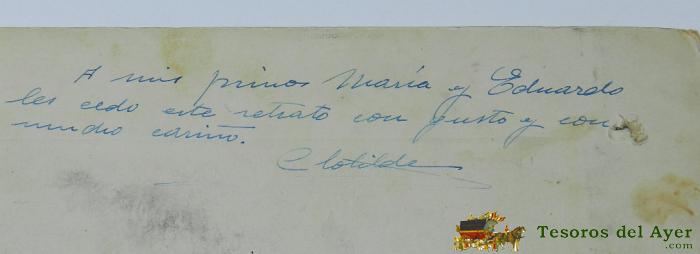 A mis primos María y Eduardo
les cedo este retrato con gusto y con
mucho cariño.
Clotilde
Tesoros del Ayer
.com